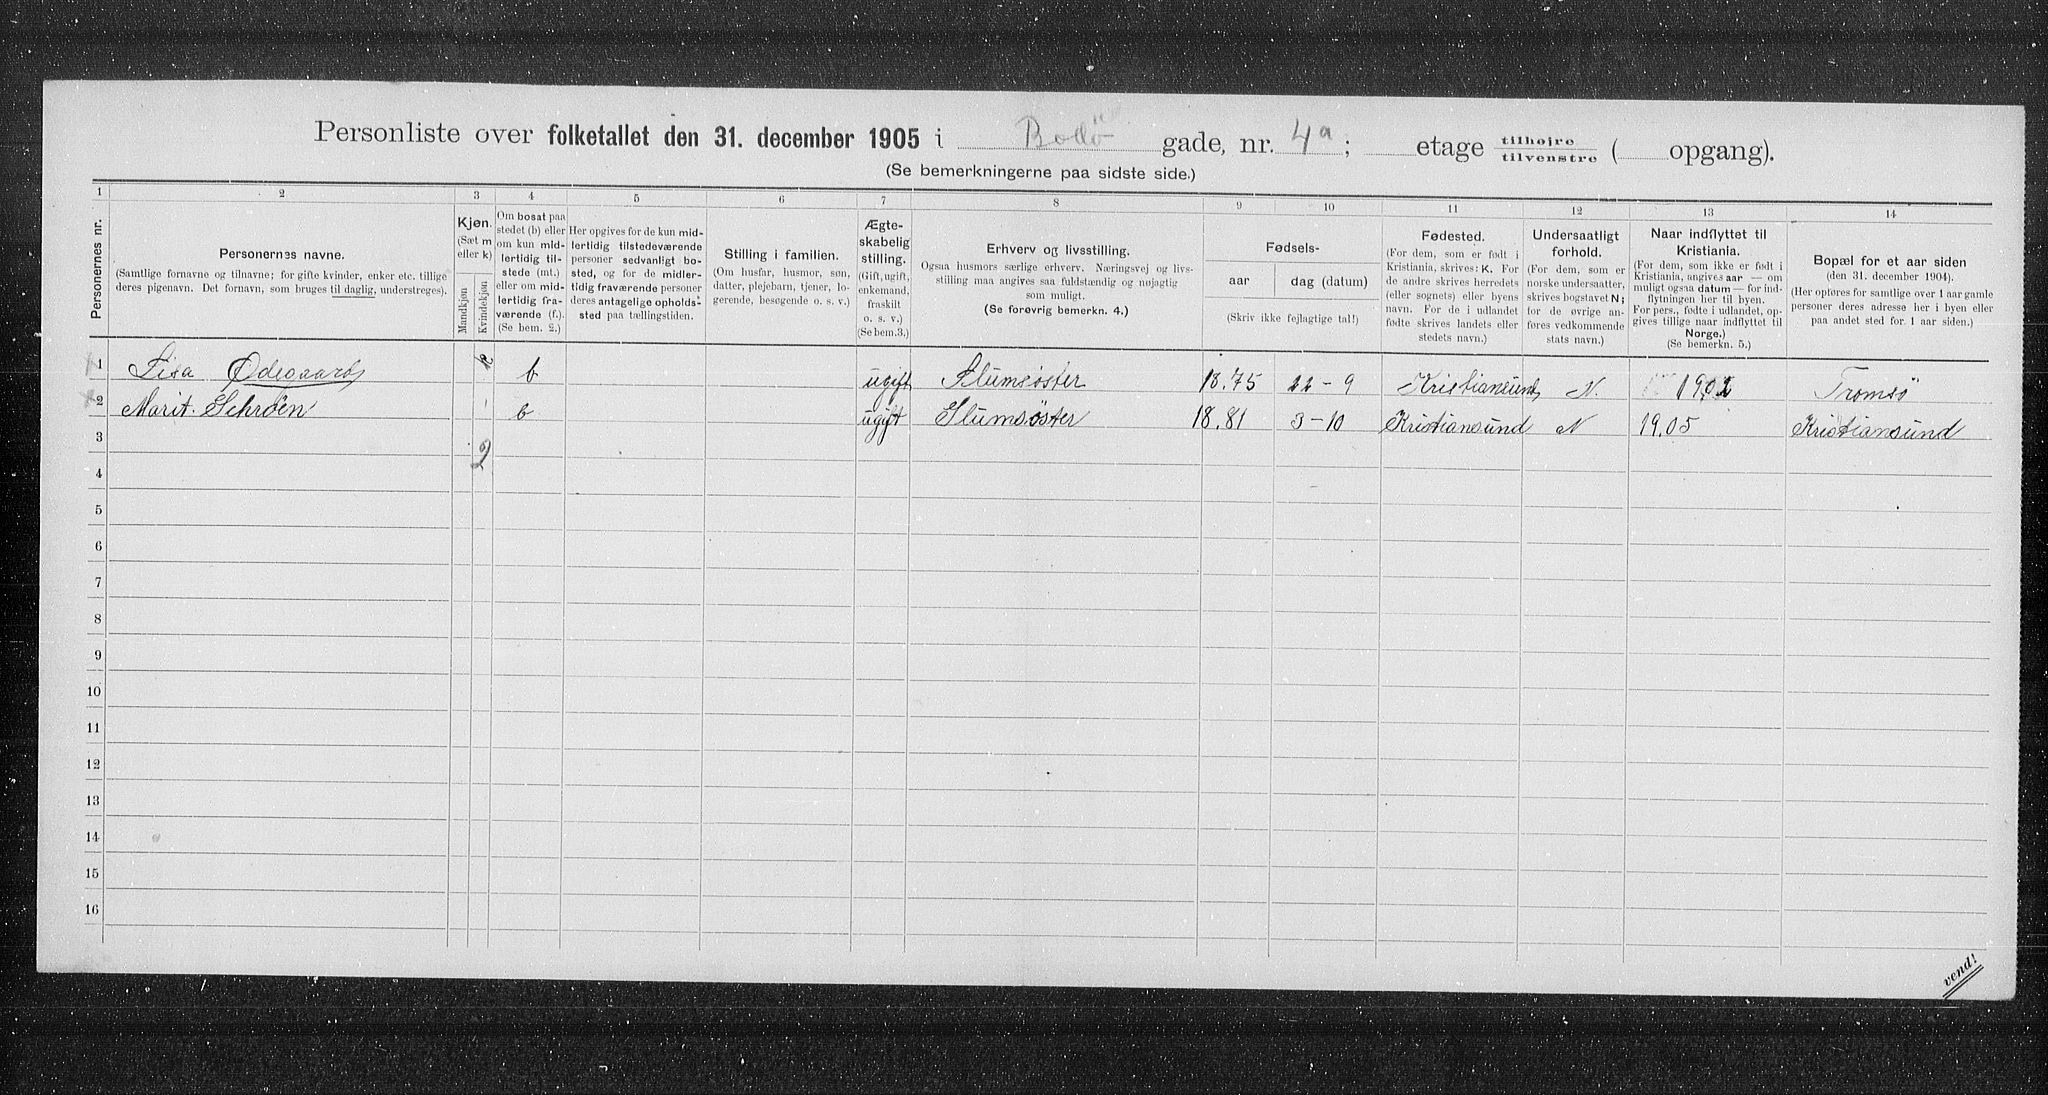 Personliste over folketallet den 31. december 1905 i Bodö gade, nr. 4a; etage tilhøjre / tilvenstre ( opgang).
(Se bemerkningerne paa sidste side.)
1 2 3 4 5 6 7 8 9 10 11 12 13 14
Personernes nr.
Personernes navne.
(Samtlige fornavne og tilnavne; for gifte kvinder, enker etc. tillige
deres pigenavn. Det fornavn, som bruges til daglig, understreges).
Kjøn.
(Sæt m
eller k)
Mandkjøn
Kvindekjøn
Om bosat paa
stedet (b) eller
om kun mid-
lertidig til-
stede (mt.)
eller om mid-
lertidig fra-
værende (f.).
(Se bem. 2.)
Her opgives for de kun mid-
lertidig tilstedeværende
personer sedvanligt bo-
sted, og for de midler-
tidig fraværende personer
deres antagelige opholds-
sted paa tællingstiden.
Stilling i familien.
(Om husfar, husmor, søn,
datter, plejebarn, tjener, lo-
gerende, besøgende o. s. v.)
Ægte-
skabelig
stilling.
(Gift, ugift,
enkemand,
fraskilt
o. s. v.)
(Se bem.3.)
Erhverv og livsstilling.
Ogsaa husmors særlige erhverv. Næringsvej og livs-
stilling maa angives saa fuldstændig og nøjagtig
som muligt.
(Se forøvrig bemerkn. 4.)
Fødsels-
aar
dag (datum)
(Skriv ikke fejlagtige tal!)
Fødested.
(For dem, som er født i
Kristiania, skrives: K. For
de andre skrives herredets
(eller sognets) eller byens
navn. For de i udlandet
fødte skrives landets eller
stedets navn.)
Undersaatligt
forhold.
(For dem, som er
norske undersaatter,
skrives bogstavet N;
for de øvrige an-
føres vedkommende
stats navn.)
Naar indflyttet til
Kristiania.
(For dem, som ikke er født i
Kristiania, angives aar — om
muligt ogsaa datum — for ind-
flytningen her til byen.
For pers., fødte i udlandet, op-
gives tillige naar indflyttet til
Norge.)
(Se bemerkn. 5.)
Bopæl for et aar siden
(den 31. december 1904).
(Her opføres for samtlige over 1 aar gamle
personer deres adresse her i byen eller
paa andet sted for 1 aar siden.)
1 Lisa Ødegaard k b ugift Slumsöster 18.75 22-9 Kristiansund N. Tromsö
2 Marit. Schröen b ugift Slumsöster 18.81 3-10 Kristiansund N 19.05 Kristiansund
3 2
4
5
6
7
8
9
10
11
12
13
14
15
16
vend!